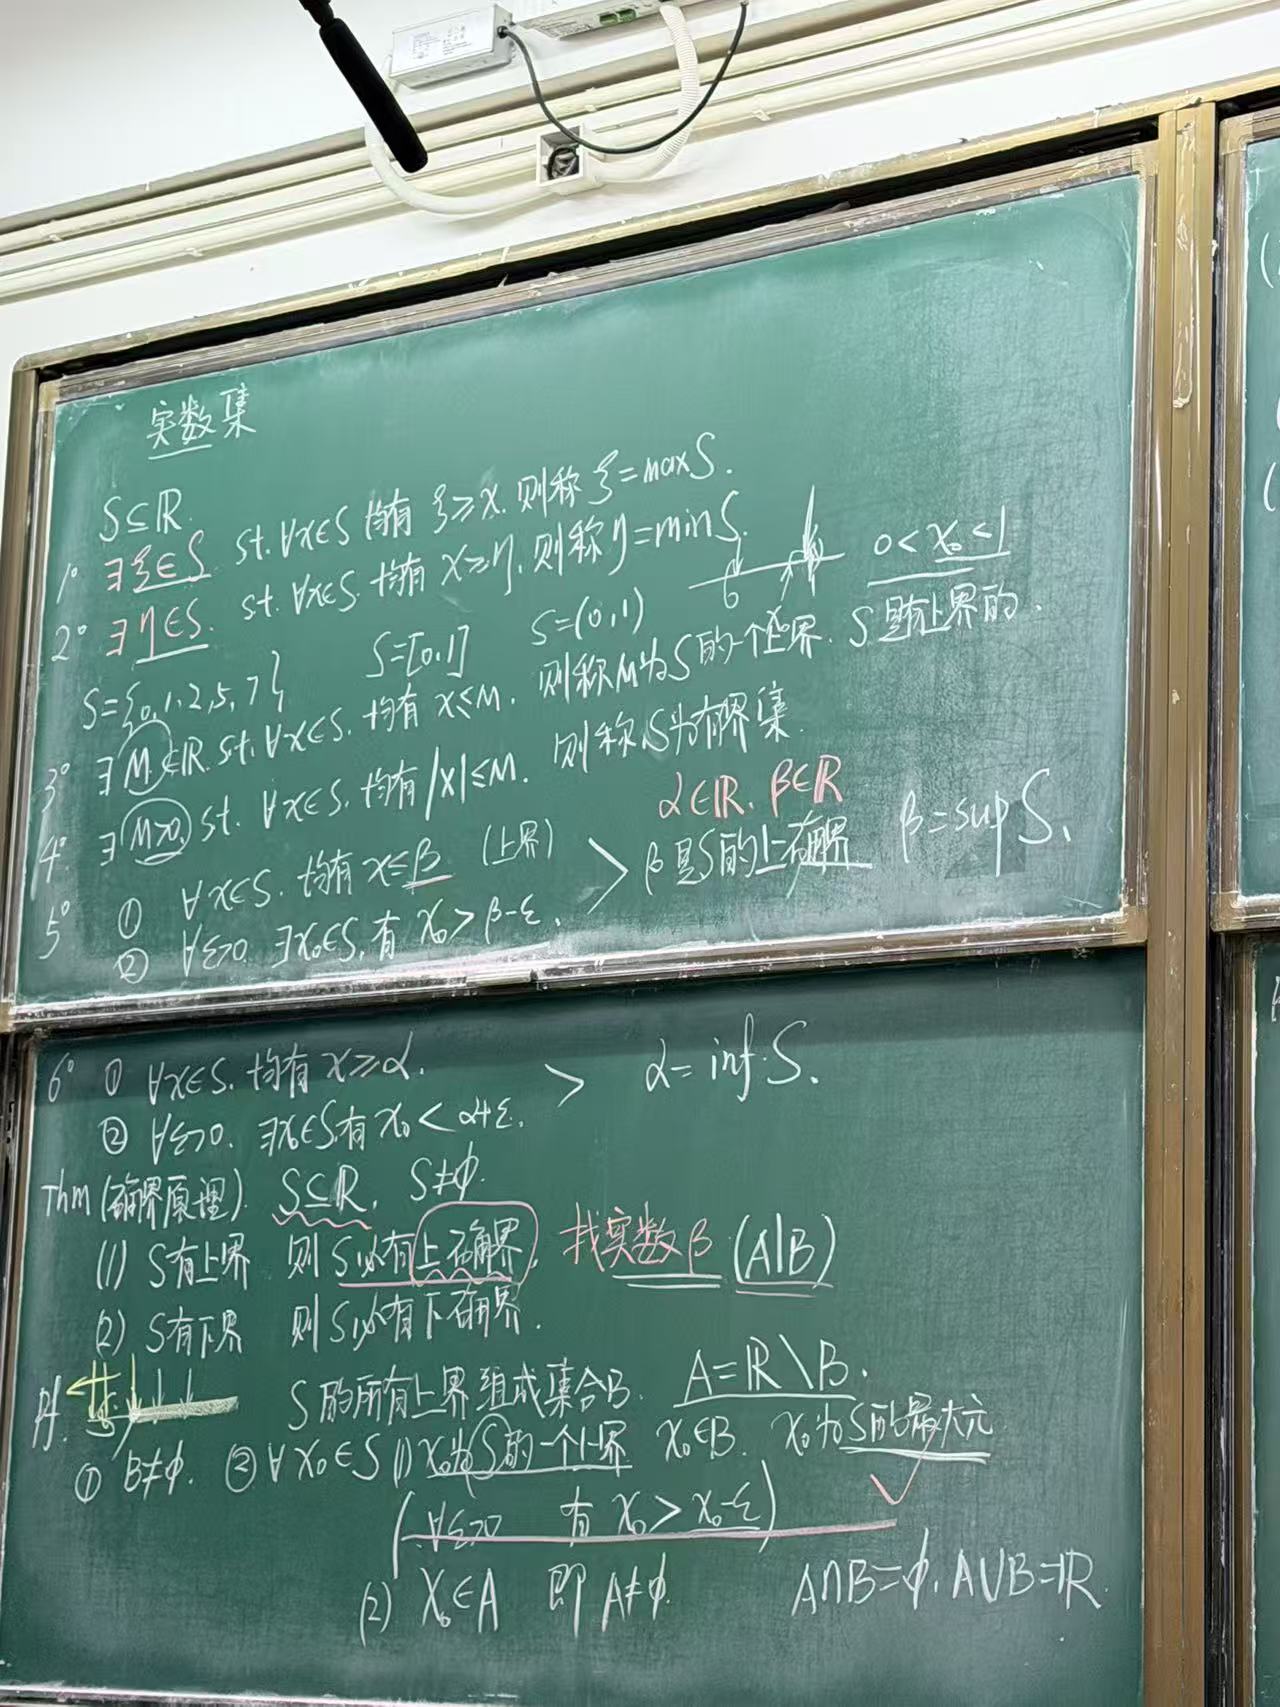 实数集
S⊆ℝ.
1° ∃ξ∈S st. ∀x∈S 均有 ξ≥x. 则称 ξ=maxS.
2° ∃η∈S. st. ∀x∈S. 均有 x≥η. 则称η=minS.
S={0,1,2,5,7} S=[0,1] S=(0,1) 0 0<x₀<1
3° ∃M∈ℝ. st. ∀x∈S. 均有 x≤M. 则称M为S的一个上界. S是有上界的.
4° ∃M>0. st. ∀x∈S. 均有|x|≤M. 则称S为有界集.
α∈ℝ. β∈ℝ
5° ① ∀x∈S. 均有 x≤β (上界) > β是S的上确界 β=supS.
② ∀ε>0 ∃x₀∈S. 有 x₀>β-ε.
6° ① ∀x∈S. 均有 x≥α. > α=inf S.
② ∀ε>0. ∃x₀∈S有 x₀<α+ε.
Thm (确界原理). S⊆ℝ. S≠φ.
(1) S有上界 则 S必有上确界. 找实数β (A|B)
(2) S有下界 则 S必有下确界.
Pf. S的所有上界组成集合B. A=ℝ\B.
① B≠φ. ② ∀x₀∈S (1) x₀为S的一个上界 x₀∈B. x₀为S的最大元
(∀ε>0 有 x₀>x₀-ε)
(2) x₀∈A 即 A≠φ. A∩B=φ. A∪B=ℝ.